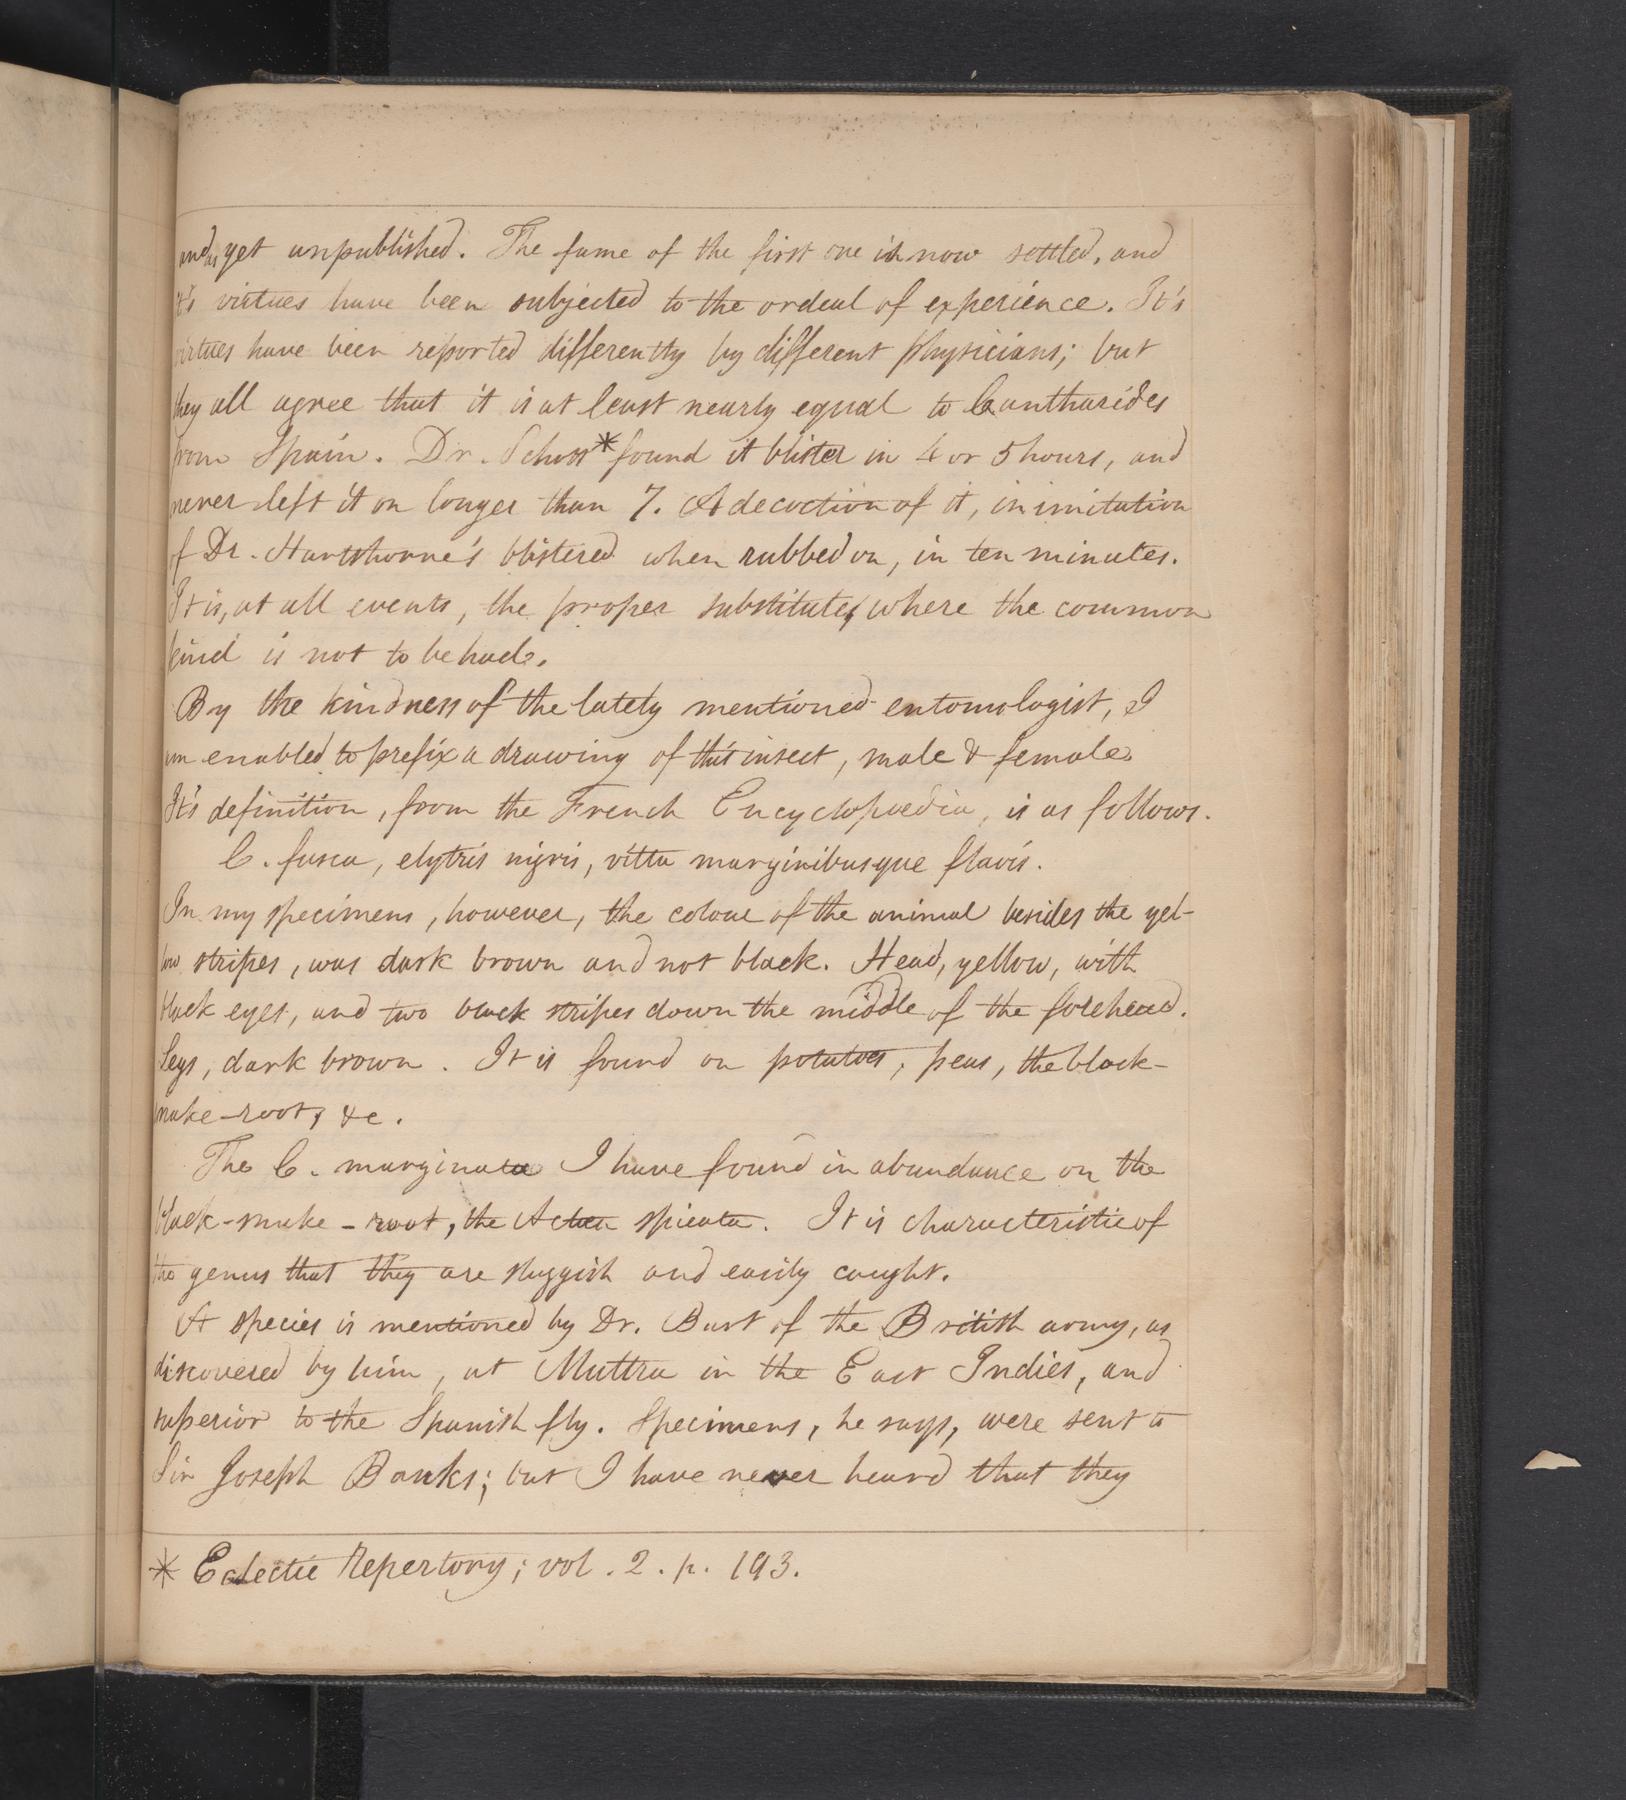 and as yet unpublished. The fame of the first one is now settled, and
it's virtues have been subjected to the ordeal of experience. It's
virtues have been reported differently by different Physicians; but
they all agree that it is at least nearly equal to Cantharides
from Spain. Dr. Schott* found it blister in 4 or 5 hours, and
never left it on longer than 7. A decoction of it, in imitation
of Dr. Hartshorne's blistered when rubbed on, in ten minutes.
It is, at all events, the proper substitute, where the common
kind is not to be had.
By the kindness of the lately mentioned entomologist, I
am enabled to prefix a drawing of this insect, male & female.
It's definition, from the French Encyclopaedia, is as follows.
C. fusca, elytris nigris, vitta marginibusque flavis.
In my specimens, however, the colour of the animal besides the yel-
low stripes, was dark brown and not black. Head, yellow, with
black eyes, and two black stripes down the middle of the forehead.
Legs, dark brown. It is found on potatoes, peas, the black-
snake-root, &c.
The C. marginata I have found in abundance on the
black-snake-root, the Actea spicata. It is characteristic of
the genus that they are sluggish and easily caught.
A species is mentioned by Dr. Burt of the British army, as
discovered by him, at Muttra in the East Indies, and
superior to the Spanish fly. Specimens, he says, were sent to
Sir Joseph Banks; but I have never heard that they
* Eclectic Repertory; vol. 2. p. 193.